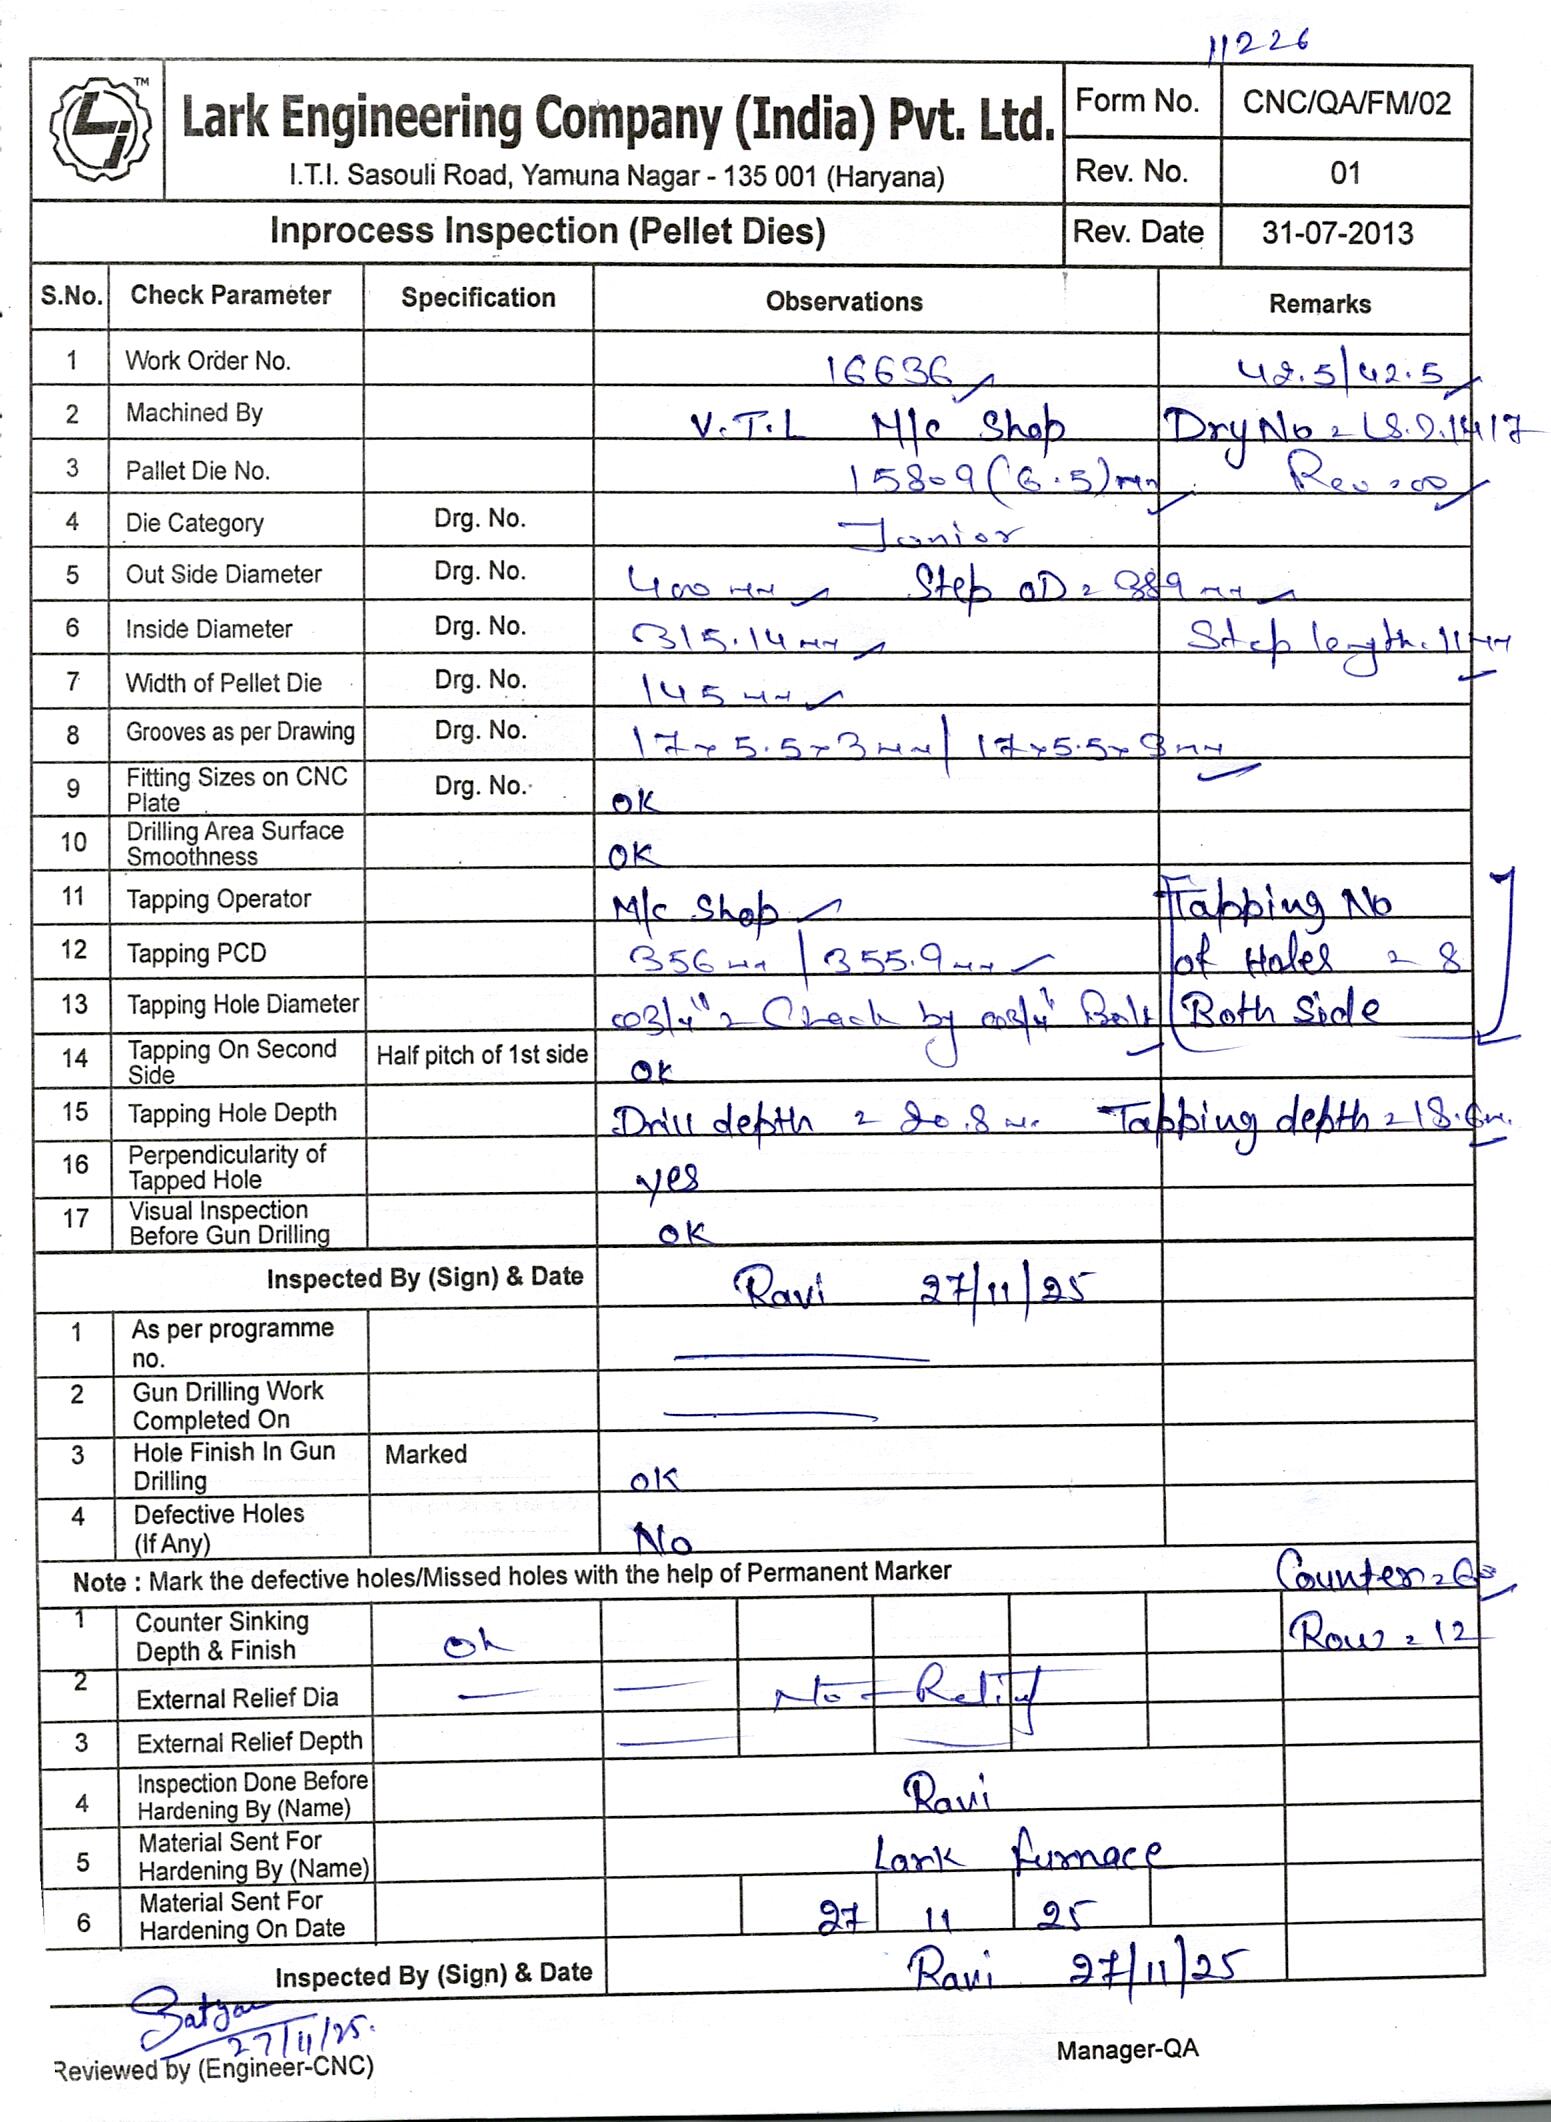 11226
TM
Lark Engineering Company (India) Pvt. Ltd.
I.T.I. Sasouli Road, Yamuna Nagar - 135 001 (Haryana)
Form No. CNC/QA/FM/02
Rev. No. 01
Inprocess Inspection (Pellet Dies) Rev. Date 31-07-2013
S.No. Check Parameter Specification Observations Remarks
1 Work Order No. 16636 42.5/42.5
2 Machined By V.T.L M/c Shop Dry No = L.S.D.1417
3 Pallet Die No. 15809 (6.5) mm Rev = 00
4 Die Category Drg. No. Junior
5 Out Side Diameter Drg. No. 400 mm Step OD = 389 mm
6 Inside Diameter Drg. No. 315.14 mm Step length = 11 mm
7 Width of Pellet Die Drg. No. 145 mm
8 Grooves as per Drawing Drg. No. 17 x 5.5 x 3 mm / 17 x 5.5 x 3 mm
9 Fitting Sizes on CNC Plate Drg. No. OK
10 Drilling Area Surface Smoothness OK
11 Tapping Operator M/c Shop Tapping No
12 Tapping PCD 356 mm / 355.9 mm of Holes = 8
13 Tapping Hole Diameter 3/4" = Check by 3/4" Bolt Both Side
14 Tapping On Second Side Half pitch of 1st side OK
15 Tapping Hole Depth Drill depth = 20.8 m. Tapping depth = 18.6 m.
16 Perpendicularity of Tapped Hole yes
17 Visual Inspection Before Gun Drilling OK
Inspected By (Sign) & Date Ravi 27/11/25
1 As per programme no.
2 Gun Drilling Work Completed On
3 Hole Finish In Gun Drilling Marked OK
4 Defective Holes (If Any) No
Note : Mark the defective holes/Missed holes with the help of Permanent Marker Counter =
1 Counter Sinking Depth & Finish Ok Row = 12
2 External Relief Dia No Relief
3 External Relief Depth
4 Inspection Done Before Hardening By (Name) Ravi
5 Material Sent For Hardening By (Name) Lark furnace
6 Material Sent For Hardening On Date 27 11 25
Inspected By (Sign) & Date Ravi 27/11/25
Satyam
27/11/25.
Reviewed by (Engineer-CNC) Manager-QA